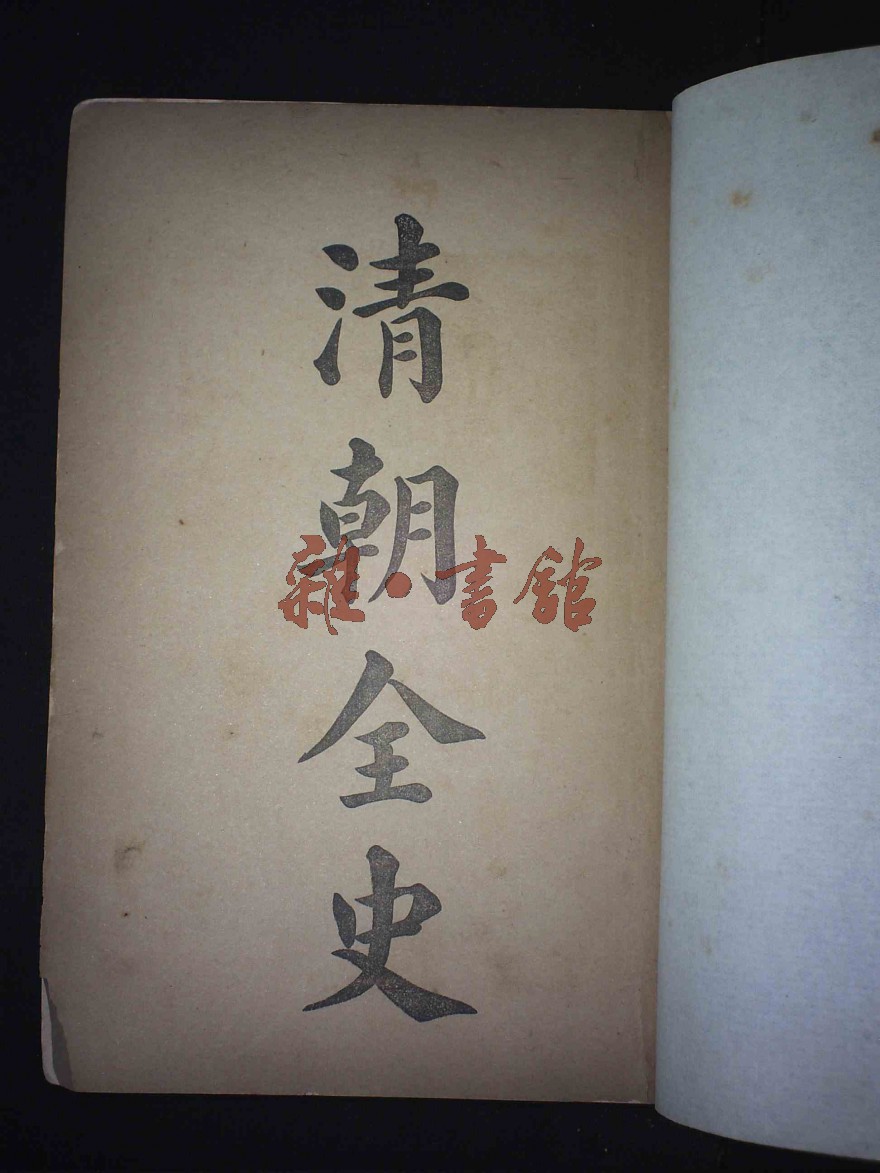 清朝全史
雜·書舘